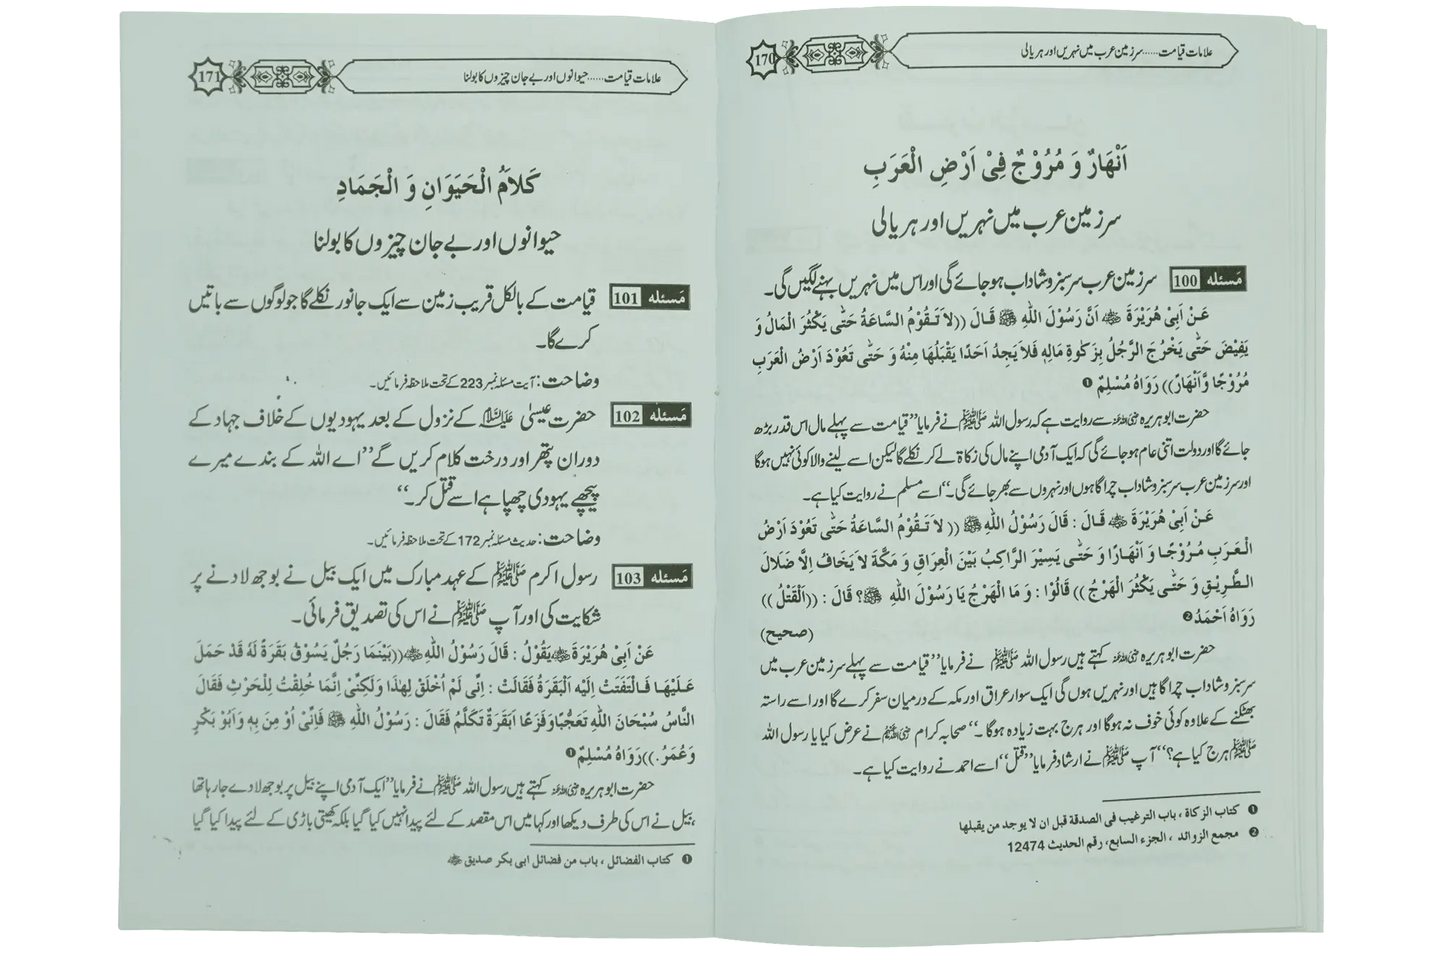 علامات قیامت......سرزمین عرب میں نہریں اور ہریالی
170
اَنْهَارٌ وَ مُرُوْجٌ فِیْ اَرْضِ الْعَرَبِ
سرزمین عرب میں نہریں اور ہریالی
مَسئله 100 سرزمین عرب سرسبز و شاداب ہوجائے گی اور اس میں نہریں بہنے لگیں گی۔
عَنْ اَبِیْ هُرَیْرَةَ ﷺ اَنَّ رَسُوْلَ اللّٰهِ ﷺ قَالَ ((لاَ تَقُوْمُ السَّاعَةُ حَتّٰی یَكْثُرَ الْمَالُ وَ
یَفِیْضَ حَتّٰی یَخْرُجَ الرَّجُلُ بِزَكٰوةِ مَالِهٖ فَلاَ یَجِدُ اَحَدًا یَقْبَلُهَا مِنْهُ وَ حَتّٰی تَعُوْدَ اَرْضُ الْعَرَبِ
مُرُوْجًا وَّاَنْهَارً)) رَوَاهُ مُسْلِمٌ ❶
حضرت ابو ہریرہ رضی اللہ عنہ سے روایت ہے کہ رسول اللہ ﷺ نے فرمایا ’’قیامت سے پہلے مال اس قدر بڑھ
جائے گا اور دولت اتنی عام ہوجائے گی کہ ایک آدمی اپنے مال کی زکاۃ لے کر نکلے گا لیکن اسے لینے والا کوئی نہیں ہوگا
اور سرزمین عرب سرسبز و شاداب چراگاہوں اور نہروں سے بھر جائے گی۔‘‘ اسے مسلم نے روایت کیا ہے۔
عَنْ اَبِیْ هُرَیْرَةَ قَالَ : قَالَ رَسُوْلُ اللّٰهِ ﷺ (( لاَ تَقُوْمُ السَّاعَةُ حَتّٰی تَعُوْدَ اَرْضُ
الْعَرَبِ مُرُوْجًا وَ اَنْهَارًا وَ حَتّٰی یَسِیْرَ الرَّاكِبُ بَیْنَ الْعِرَاقِ وَ مَكَّةَ لاَ یَخَافُ اِلَّا ضَلاَلَ
الطَّرِیْقِ وَ حَتّٰی یَكْثُرَ الْهَرْجُ )) قَالُوْا : وَ مَا الْهَرْجُ یَا رَسُوْلَ اللّٰهِ ﷺ؟ قَالَ : ((اَلْقَتْلُ ))
رَوَاهُ اَحْمَدُ ❷ (صحیح)
حضرت ابو ہریرہ رضی اللہ عنہ کہتے ہیں رسول اللہ ﷺ نے فرمایا ’’قیامت سے پہلے سرزمین عرب میں
سرسبز و شاداب چراگاہیں اور نہریں ہوں گی ایک سوار عراق اور مکہ کے درمیان سفر کرے گا اور اسے راستہ
بھٹکنے کے علاوہ کوئی خوف نہ ہوگا اور ہرج بہت زیادہ ہوگا۔‘‘ صحابہ کرام نے عرض کیا یا رسول اللہ
ﷺ ہرج کیا ہے؟‘‘ آپ ﷺ نے ارشاد فرمایا ’’قتل‘‘ اسے احمد نے روایت کیا ہے۔
❶ كتاب الزكاة ، باب الترغيب فى الصدقة قبل ان لا يوجد من يقبلها
❷ مجمع الزوائد ، الجزء السابع، رقم الحديث 12474
علامات قیامت......حیوانوں اور بے جان چیزوں کا بولنا
171
كَلاَمُ الْحَیَوَانِ وَ الْجَمَادِ
حیوانوں اور بے جان چیزوں کا بولنا
مَسئله 101 قیامت کے بالکل قریب زمین سے ایک جانور نکلے گا جو لوگوں سے باتیں
کرے گا۔
وضاحت : آیت مسئلہ نمبر 223 کے تحت ملاحظہ فرمائیں۔
مَسئله 102 حضرت عیسیٰ علیہ السلام کے نزول کے بعد یہودیوں کے خلاف جہاد کے
دوران پتھر اور درخت کلام کریں گے ’’اے اللہ کے بندے میرے
پیچھے یہودی چھپا ہے اسے قتل کر۔‘‘
وضاحت : حدیث مسئلہ نمبر 172 کے تحت ملاحظہ فرمائیں۔
مَسئله 103 رسول اکرم ﷺ کے عہد مبارک میں ایک بیل نے بوجھ لادنے پر
شکایت کی اور آپ ﷺ نے اس کی تصدیق فرمائی۔
عَنْ اَبِیْ هُرَیْرَةَ یَقُوْلُ : قَالَ رَسُوْلُ اللّٰهِ ﷺ ((بَیْنَمَا رَجُلٌ یَسُوْقُ بَقَرَةً لَهٗ قَدْ حَمَلَ
عَلَیْهَا فَالْتَفَتَتْ اِلَیْهِ الْبَقَرَةُ فَقَالَتْ : اِنِّی لَمْ اُخْلَقْ لِهٰذَا وَلٰكِنِّیْ اِنَّمَا خُلِقْتُ لِلْحَرْثِ فَقَالَ
النَّاسُ سُبْحَانَ اللّٰهِ تَعَجُّبًا وَفَزَعًا اَبَقَرَةٌ تَكَلَّمُ فَقَالَ : رَسُوْلُ اللّٰهِ ﷺ فَاِنِّیْ اُوْ مِنُ بِهٖ وَاَبُوْ بَكْرٍ
وَعُمَرُ.))رَوَاهُ مُسْلِمٌ ❶
حضرت ابو ہریرہ رضی اللہ عنہ کہتے ہیں رسول اللہ ﷺ نے فرمایا ’’ایک آدمی اپنے بیل پر بوجھ لادے جا رہا تھا
،بیل نے اس کی طرف دیکھا اور کہا میں اس مقصد کے لئے پیدا نہیں کیا گیا بلکہ کھیتی باڑی کے لئے پیدا کیا گیا
❶ كتاب الفضائل ، باب من فضائل ابى بكر صديق